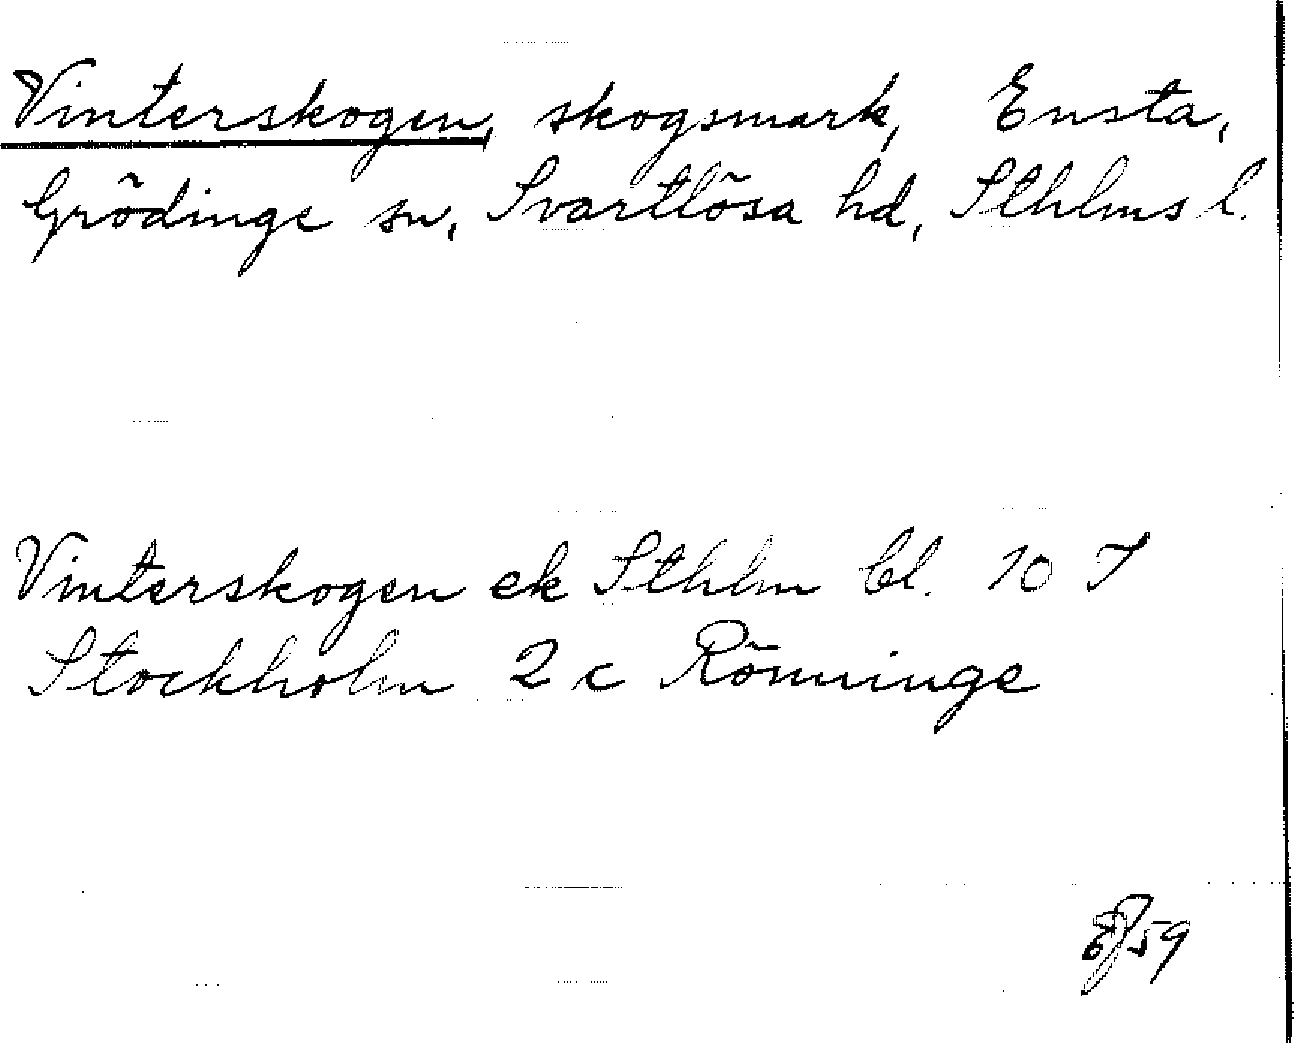 Vinterskogen, skogsmark, Ensta,
Grödinge sn, Svartlösa hd, Sthlms l.
Vinterskogen ek Sthlm bl. 10 T
Stockholm 2 c Rönninge
59